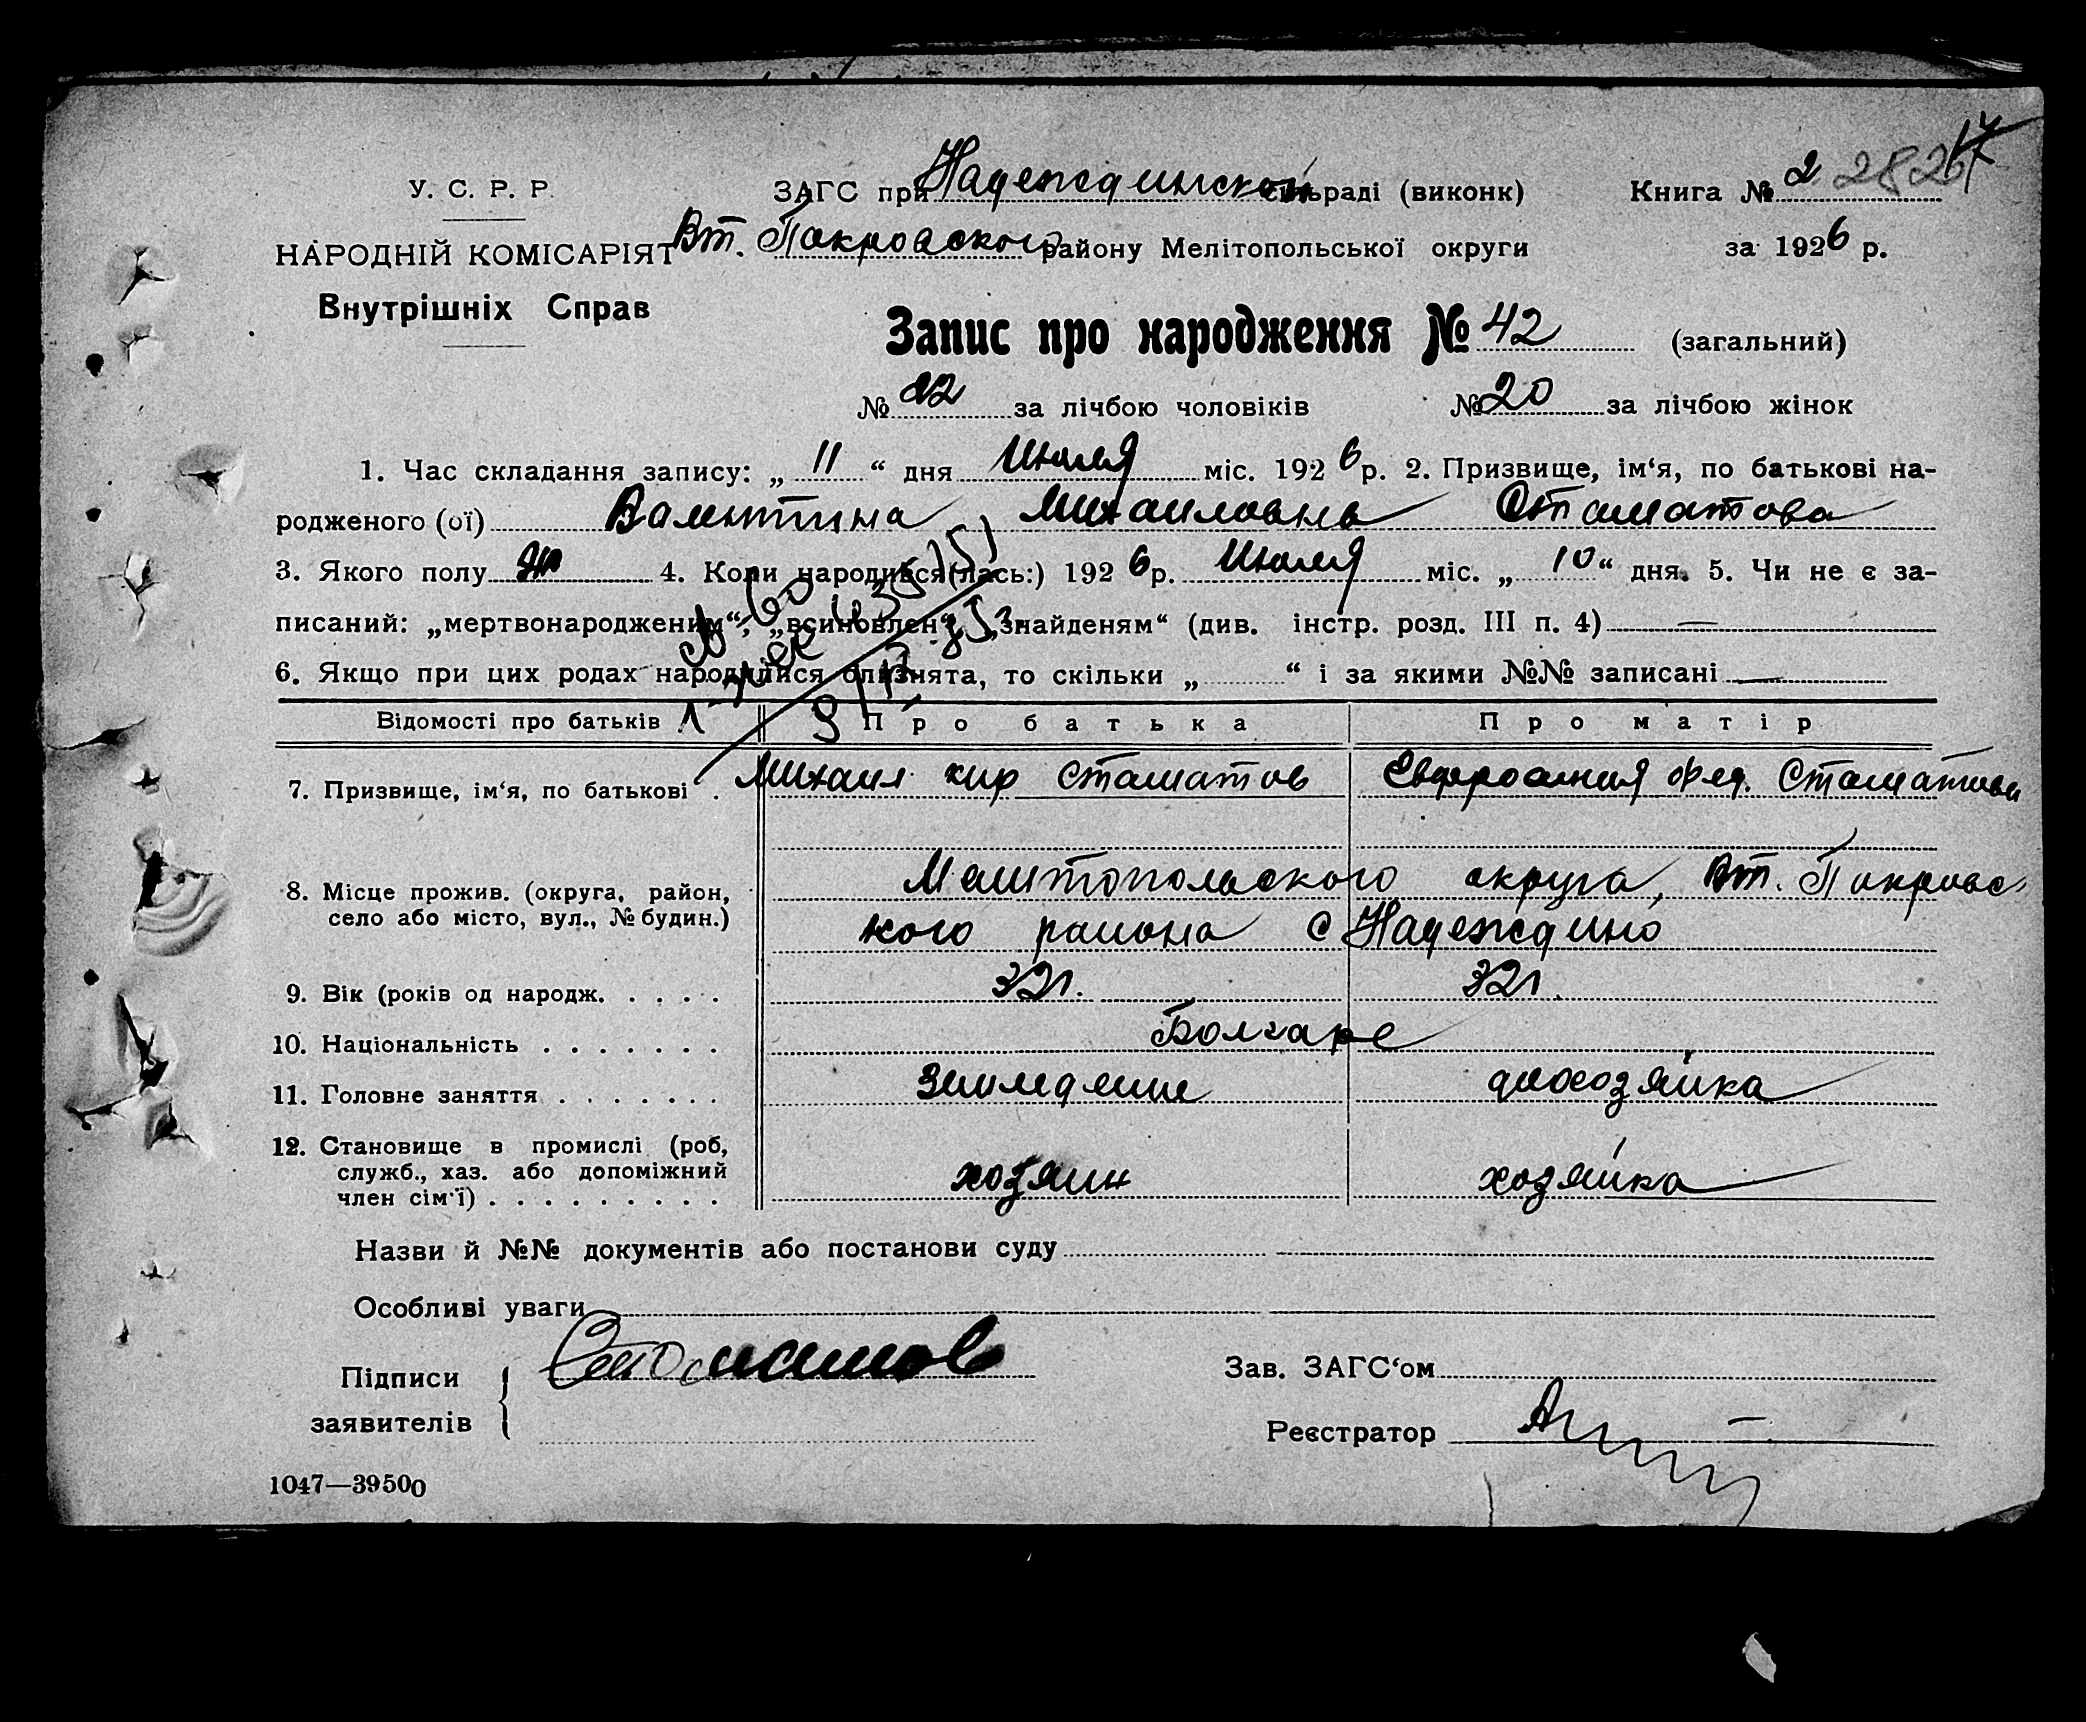 У. С. Р. Р. ЗАГС при Надеждинской сільраді (виконк) Книга № 2
НАРОДНІЙ КОМІСАРІЯТ Вт. Покровского району Мелітопольської округи за 1926 р.
Внутрішніх Справ
Запис про народження № 42 (загальний)
№ 22 за лічбою чоловіків № 20 за лічбою жінок
1. Час складання запису: „ 11 “ дня Июля міс. 1926 р. 2. Призвище, ім‘я, по батькові на-
родженого (ої) Валентина Михаиловна Стаматова
3. Якого полу 4. Коли народився(лась:) 1926 р. Июля міс. „ 10 “ дня. 5. Чи не є за-
писаний: „мертвонародженим“, „всиновлен“, „знайденям“ (див. інстр. розд. III п. 4) —
6. Якщо при цих родах народилися близнята, то скільки „ “ і за якими №№ записані —
Відомості про батьків Про батька Про матір
7. Призвище, ім‘я, по батькові . Михаил кир Стаматов Евфросиния Фед. Стаматова
8. Місце прожив. (округа, район, Мелитопольского округа, Вт. Покровс
село або місто, вул., № будин.) кого района с Надеждино
9. Вік (років од народж. . . . . 32 г. 32 г.
10. Національність . . . . . . . Болгаре
11. Головне заняття . . . . . . . Земледелие дмохозяйка
12. Становище в промислі (роб,
служб., хаз. або допоміжний хозяин хозяйка
член сім‘ї) . . . . . . . . .
Назви й №№ документів або постанови суду
Особливі уваги
Підписи Стаматов Зав. ЗАГС‘ом
заявителів Реєстратор
1047—39500